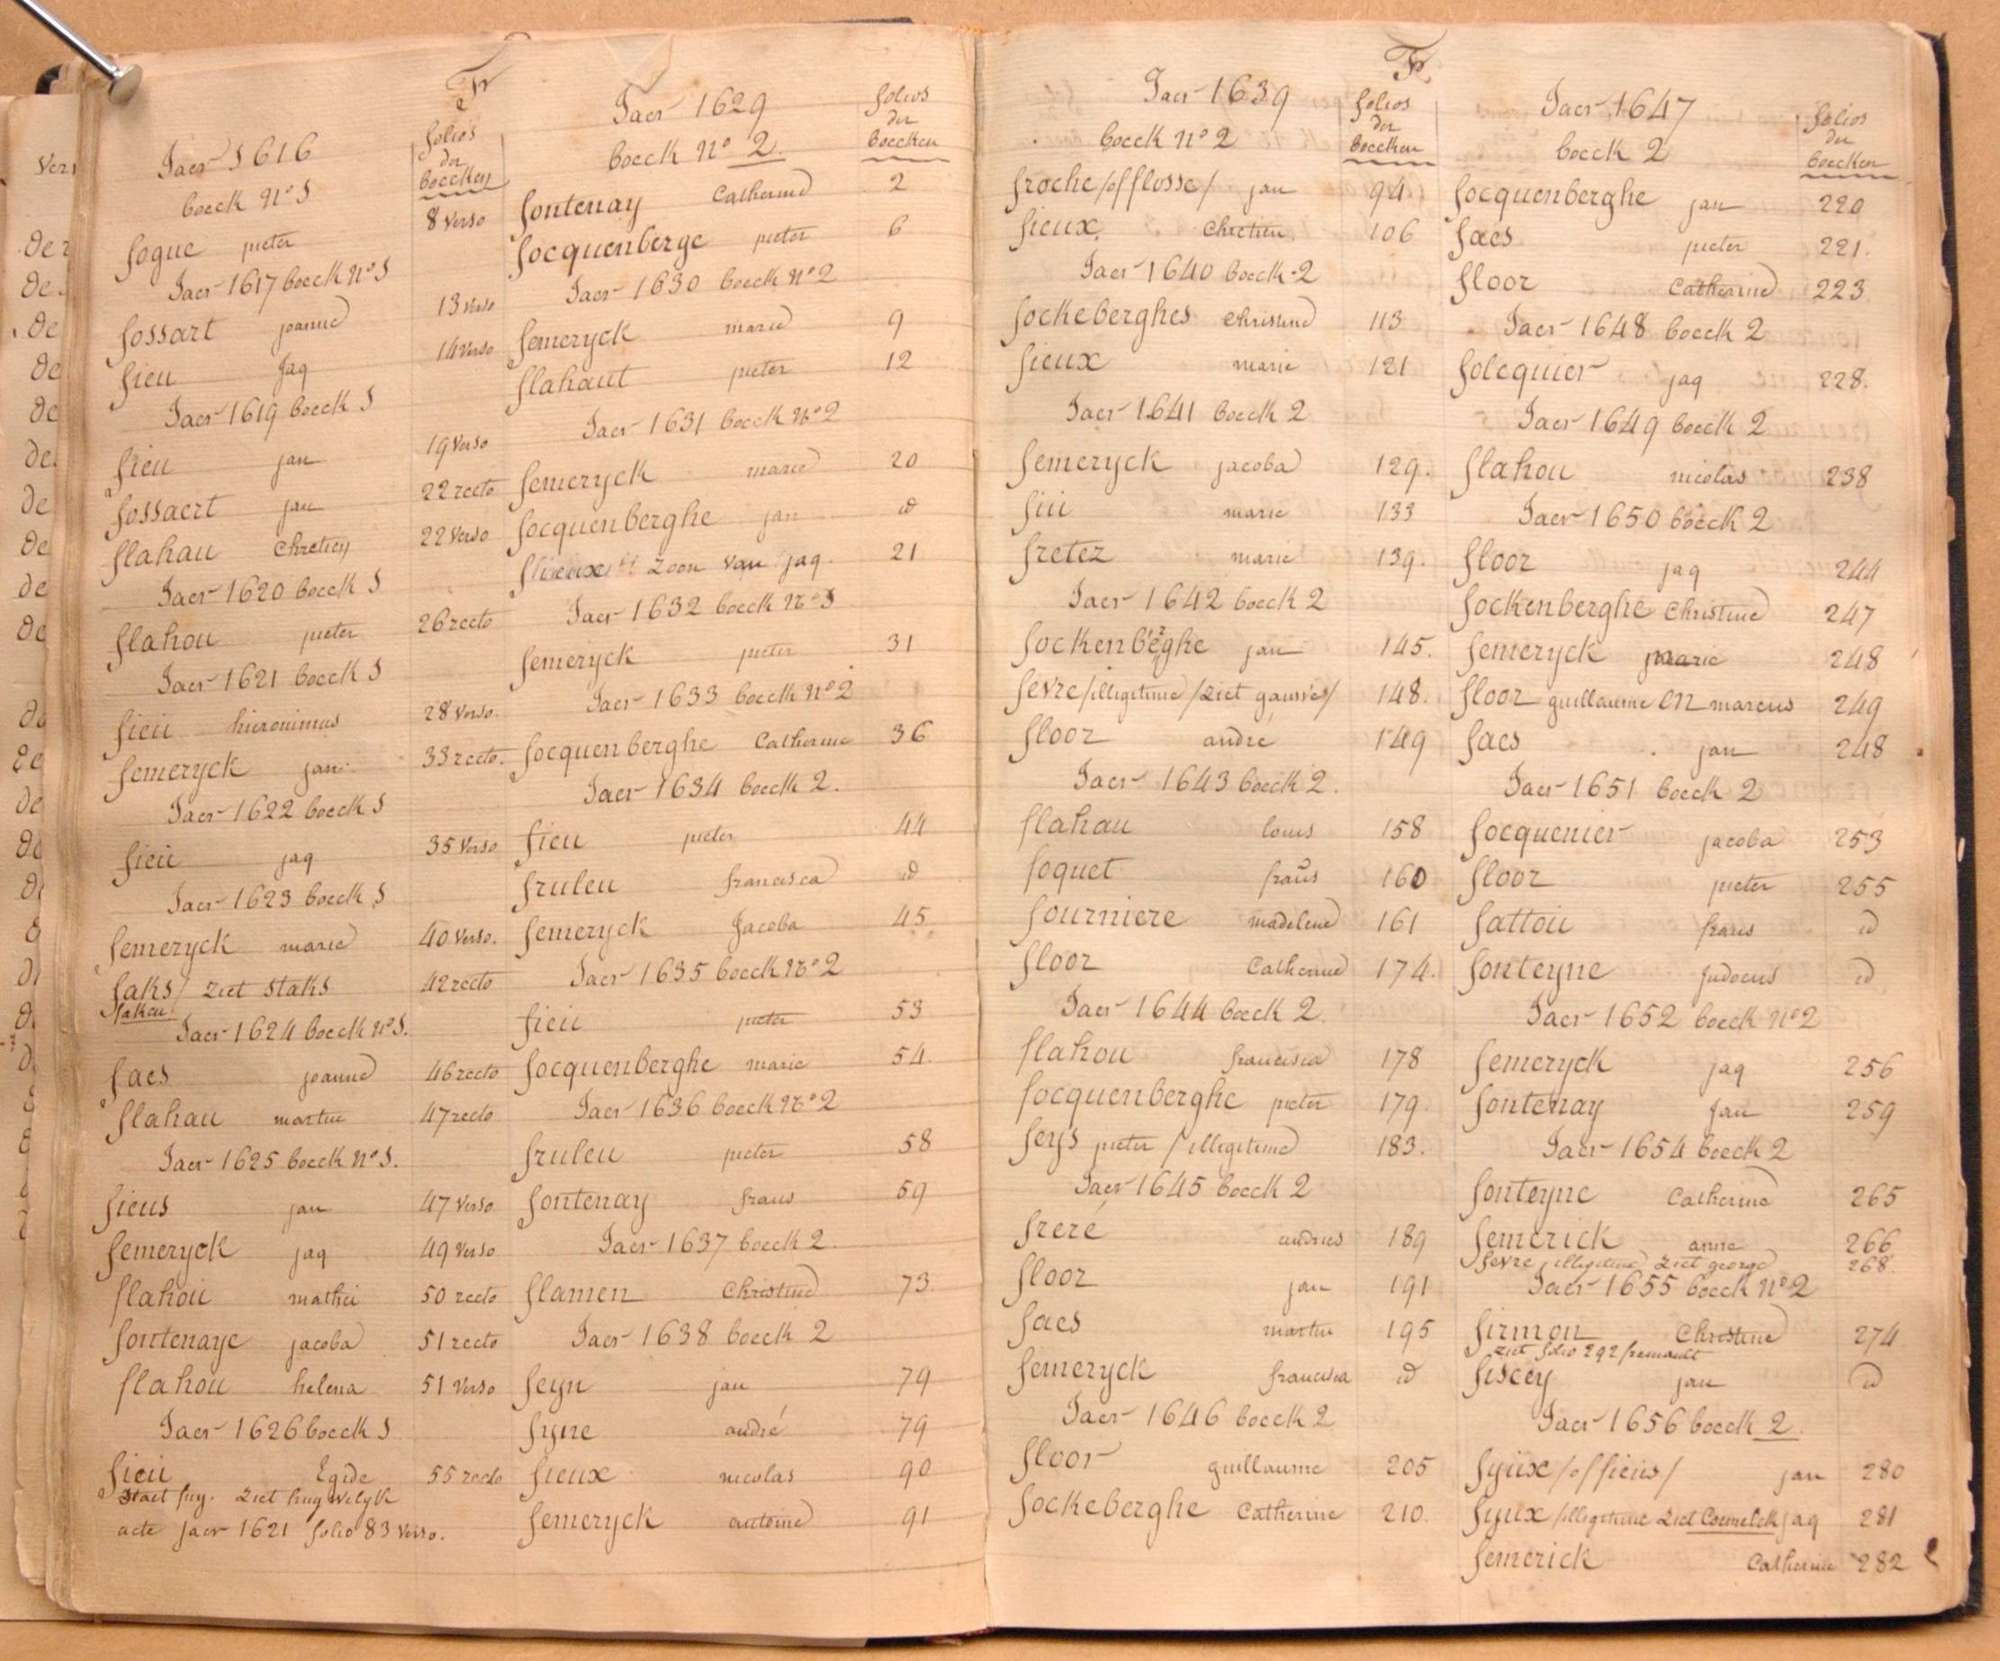 Fr
Jaer 1616
folios
der
boecken
boeck N° 1
fogue pieter 8 verso
Jaer 1617 boeck N° 1
fossart joanne 13 verso
fieu jaq 14 verso
Jaer 1619 boeck 1
fieu jan 19 verso
fossaert jan 22 recto
flahau Chretien 22 verso
Jaer 1620 boeck 1
flahou pieter 26 recto
Jaer 1621 boeck 1
fieu hieronimus 28 verso.
femeryck jan 33 recto.
Jaer 1622 boeck 1
fieu jaq 35 verso
Jaer 1623 boeck 1
femeryck marie 40 verso.
faks / ziet staks 42 recto
Jaer 1624 boeck N° 1.
faes joanne 46 recto
flahau martin 47 recto
Jaer 1625 boeck N° 1.
fieus jan 47 verso
femeryck jaq 49 verso
flahou mathei 50 recto
fontenaye jacoba 51 recto
flahou helena 51 verso
Jaer 1626 boeck 1
fieu Egide 55 recto
ziet huwelyk
acte jaer 1621 folio 83 verso.
Jaer 1629
folios
der
boecken
boeck N° 2.
fontenay Catherine 2
focquenberge pieter 6
Jaer 1630 boeck N° 2
femeryck marie 9
flahaut pieter 12
Jaer 1631 boeck N° 2
femeryck marie 20
focquenberghe jan id
zoon van jaq. 21
Jaer 1632 boeck N° 1
femeryck pieter 31
Jaer 1633 boeck N° 2
focquenberghe Catherine 36
Jaer 1634 boeck 2.
fieu pieter 44
fruleu francisca id
femeryck Jacoba 45
Jaer 1635 boeck N° 2
fieu pieter 53
focquenberghe marie 54.
Jaer 1636 boeck N° 2
fruleu pieter 58
fontenay frans 59
Jaer 1637 boeck 2
flamen Christine 73
Jaer 1638 boeck 2
feyn jan 79
fyne andré 79
fieux nicolas 90
femeryck antoine 91
Fr.
Jaer 1639
folios
der
boecken
boeck N° 2
froche / of flosse / jan 94
fieux Chretien 106
Jaer 1640 boeck 2
fockeberghes Christine 113
fieux marie 121
Jaer 1641 boeck 2
femeryck jacoba 129.
fiu marie 133
fretez marie 139.
Jaer 1642 boeck 2
fockenberghe jan 145.
fevre / illegitime / ziet gaussés / 148.
floor andré 149
Jaer 1643 boeck 2.
flahau louis 158
foquet frans 160
fourniere madelene 161
floor Catherine 174.
Jaer 1644 boeck 2.
flahou francisca 178
focquenberghe pieter 179
feys pieter / illegitime 183.
Jaer 1645 boeck 2
freré andries 189
floor jan 191
faes martin 195
femeryck francisca id
Jaer 1646 boeck 2
floor guillaume 205
fockeberghe Catherine 210.
Jaer 1647
folios
der
boecken
boeck 2
focquenberghe jan 220
faes pieter 221.
floor Catherine 223
Jaer 1648 boeck 2
folcquier jaq 228.
Jaer 1649 boeck 2
flahou nicolas 238
Jaer 1650 boeck 2
floor jaq 244
fockenberghe Christine 247
femeryck marie 248
floor guillaume en marcus 249
faes jan 248
Jaer 1651 boeck 2
focquenier jacoba 253
floor pieter 255
fattou frans id
fonteyne Judocus id
Jaer 1652 boeck N° 2
femeryck jaq 256
fontenay Jan 259
Jaer 1654 boeck 2
fonteyne Catherine 265
femerick anne 266
fevre, illegitime ziet george 268
Jaer 1655 boeck N° 2
firmon Christine 274
ziet folio 292 / remault
fiscey jan id
Jaer 1656 boeck 2.
fyux / of fieus / jan 280
fyux / illegitime ziet Coemelck jaq 281
femerick Catherine 282